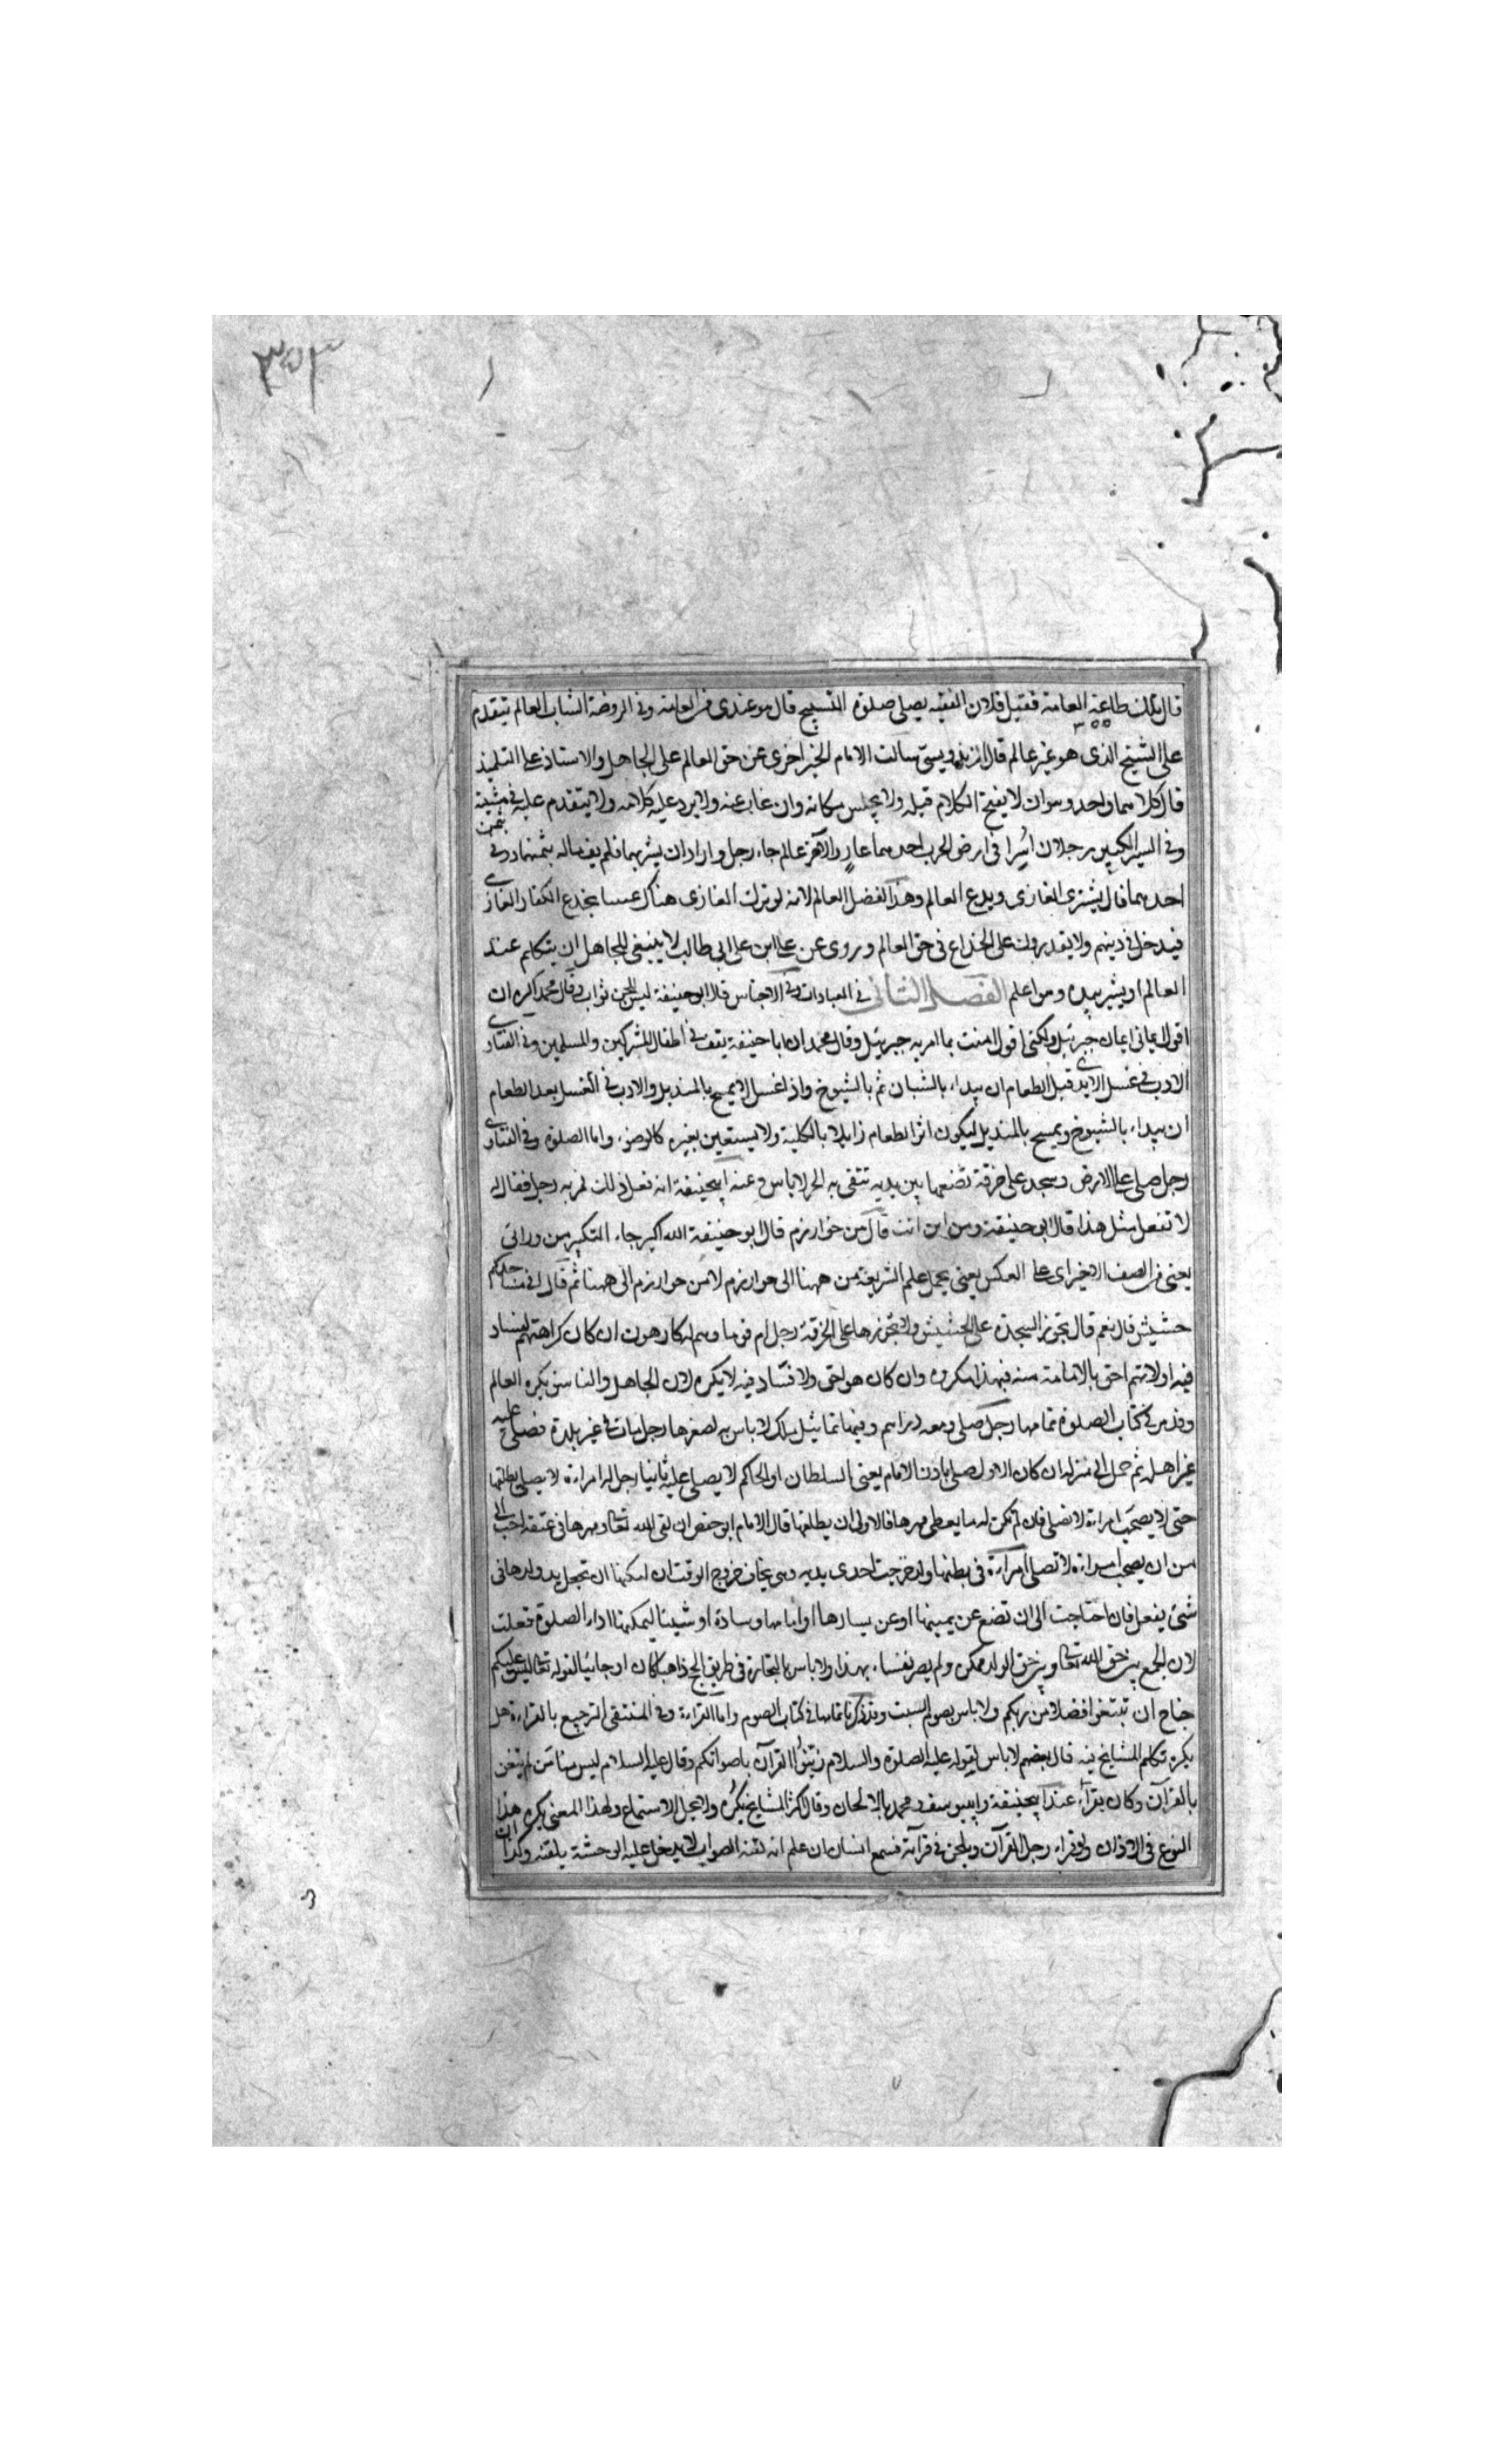 ٣٥٣
قال تلك طاعة العامة فقيل فلان الفقيه يصلى صلوة التسبيح قال هو عندى من العامة وفى الروضة الشاب العالم يتقدم
على الشيخ الذى هو غير عالم قال الزندويستى سالت الامام الخيزاخزى عن حق العالم على الجاهل والاستاذ على التلميذ
قال كلاهما واحد وهو ان لا يفتح الكلام قبله ولا يجلس مكانه وان غاب عنه ولا يرد عليه كلامه ولا يتقدم عليه فى مشيته
وفى السير الكبير رجلان اُسرا فى ارض الحرب احدهما غازٍ والآخر عالم جاء رجل واراد ان يشتريهما فلم يف ماله بثمنهما وفى بثمن
احدهما قال يشترى الغازى ويدع العالم وهذا لفضل العالم لانه لو ترك الغازى هناك عسا يخدع الكفار الغازى
فيدخل فى دينهم ولا يقدرون على الخداع فى حق العالم وروى عن على ابن ابى طالب لا ينبغى للجاهل ان يتكلم عند
العالم او يشير بيده وهو اعلم الفصل الثانى فى العبادات وفى الاجناس قال ابو حنيفة ليس للجن ثواب وقال محمد اكره ان
اقول ايمانى ايمان جبرئيل ولكنى اقول امنت بما امر به جبرئيل وقال محمد ان ابا حنيفة يقف فى اطفال المشركين والمسلمين وفى الفتاوى
الادب فى غسل الايدى قبل الطعام ان يبداء بالشبان ثم بالشيوخ واذا غسل لا يمسح بالمنديل والادب فى الغسل بعد الطعام
ان يبداء بالشيوخ ويمسح بالمنديل ليكون اثر الطعام زايلا بالكلية ولا يستعين بغيره كالوضوء واما الصلوة وفى الفتاوى
رجل صلى على الارض وسجد على خرقة تضعها بين يديه تتقى به الحر لا باس وعنه ابيحنيفة انه فعل ذلك فمر به رجل فقال له
لا تفعل مثل هذا قال ابو حنيفة ومن اين انت قال من خوارزم قال ابو حنيفة الله اكبر جاء التكبير من ورائى
يعنى من الصف الاخير اى على العكس يعنى يحمل علم الشريعة من ههنا الى خوارزم لا من خوارزم الى ههنا ثم قال افى مساجدكم
حشيش قال نعم قال تجوز السجدة على الحشيش ولا تجوزها على الخرقة رجل ام قوما وهم له كارهون ان كان كراهتهم لفساد
فيه او لانهم احق بالامامة منه فهذا مكروه وان كان هو احق ولا فساد فيه لا يكره لان الجاهل والفاسق يكره العالم
وقد مر فى كتاب الصلوة تمامها رجل صلى ومعه دراهم وفيها تماثيل ملك لا باس به لصغرها رجل مات فى غير بلدة فصلى عليه
غير اهله ثم حمل الى منزله ان كان الاول صلى باذن الامام يعنى السلطان او الحاكم لا يصلى عليه ثانيا رجل له امراءة لا يصلى يطلقها
حتى لا يصحب امراءة لا تصلى فان لم تكن له ما يعطى مهرها فالاولى ان يطلقها قال الامام ابو حفص ان لقى الله تعالى ومهرها فى عنقه احب الى
من ان يصحب امراءة لا تصلى امراءة فى بطنها ولد خرجت احدى يديه وهى يخاف خروج الوقت ان امكنها ان تجعل يد ولدها فى
شئ يفعل فان احتاجت الى ان تضع عن يمينها او عن يسارها او امامها وسادة او شيئا ليمكنها اداء الصلوة فعلت
لان الجمع بين حق الله تعالى وبين حق الولد ممكن ولم يصر نفساء بهذا ولا باس بالتجارة فى طريق الحج ذاهبا كان او جائيا لقوله تعالى ليس عليكم
جناح ان تبتغوا فضلا من ربكم ولا باس بصوم السبت وقد ذكرنا تمامها فى كتاب الصوم واما القراءة وفى المنتقى الترجيع بالقراءة هل
يكره تكلم المشايخ فيه قال بعضهم لا باس لقوله عليه الصلوة والسلام زينوا القرآن باصواتكم وقال عليه السلام ليس منا من لم يتغن
بالقرآن وكان يقراء عند ابيحنيفة وابييوسف ومحمد بالالحان وقال اكثر المشايخ يكره ولا يحل الاستماع ولهذا المعنى يكره هذا
النوع فى الاذان ولو قراء رجل القرآن ويلحن فى قرآته فسمع انسان ان علم انه لقنه الصواب لا يدخل عليه الوحشة يلقنه وكذا ان